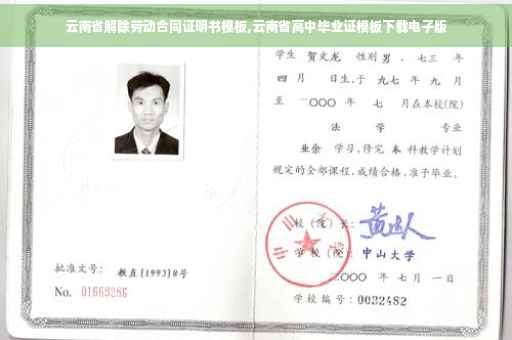 云南省解除劳动合同证明书模板,云南省高中毕业证模板下载电子版
学生 贺文龙 性别 男 、七三 年
四 月 日生,于 九七 年 九 月
至 二〇〇〇 年 七 月在本校(院)
法 学 专业
业余 学习,修完 本 科教学计划
规定的全部课程,成绩合格,准予毕业。
校(院)长:
学校(院): 中山大学
二〇〇〇 年 七 月 一 日
学校编号: 0032482
批准文号: 教直(1993)8号
No. 01669286